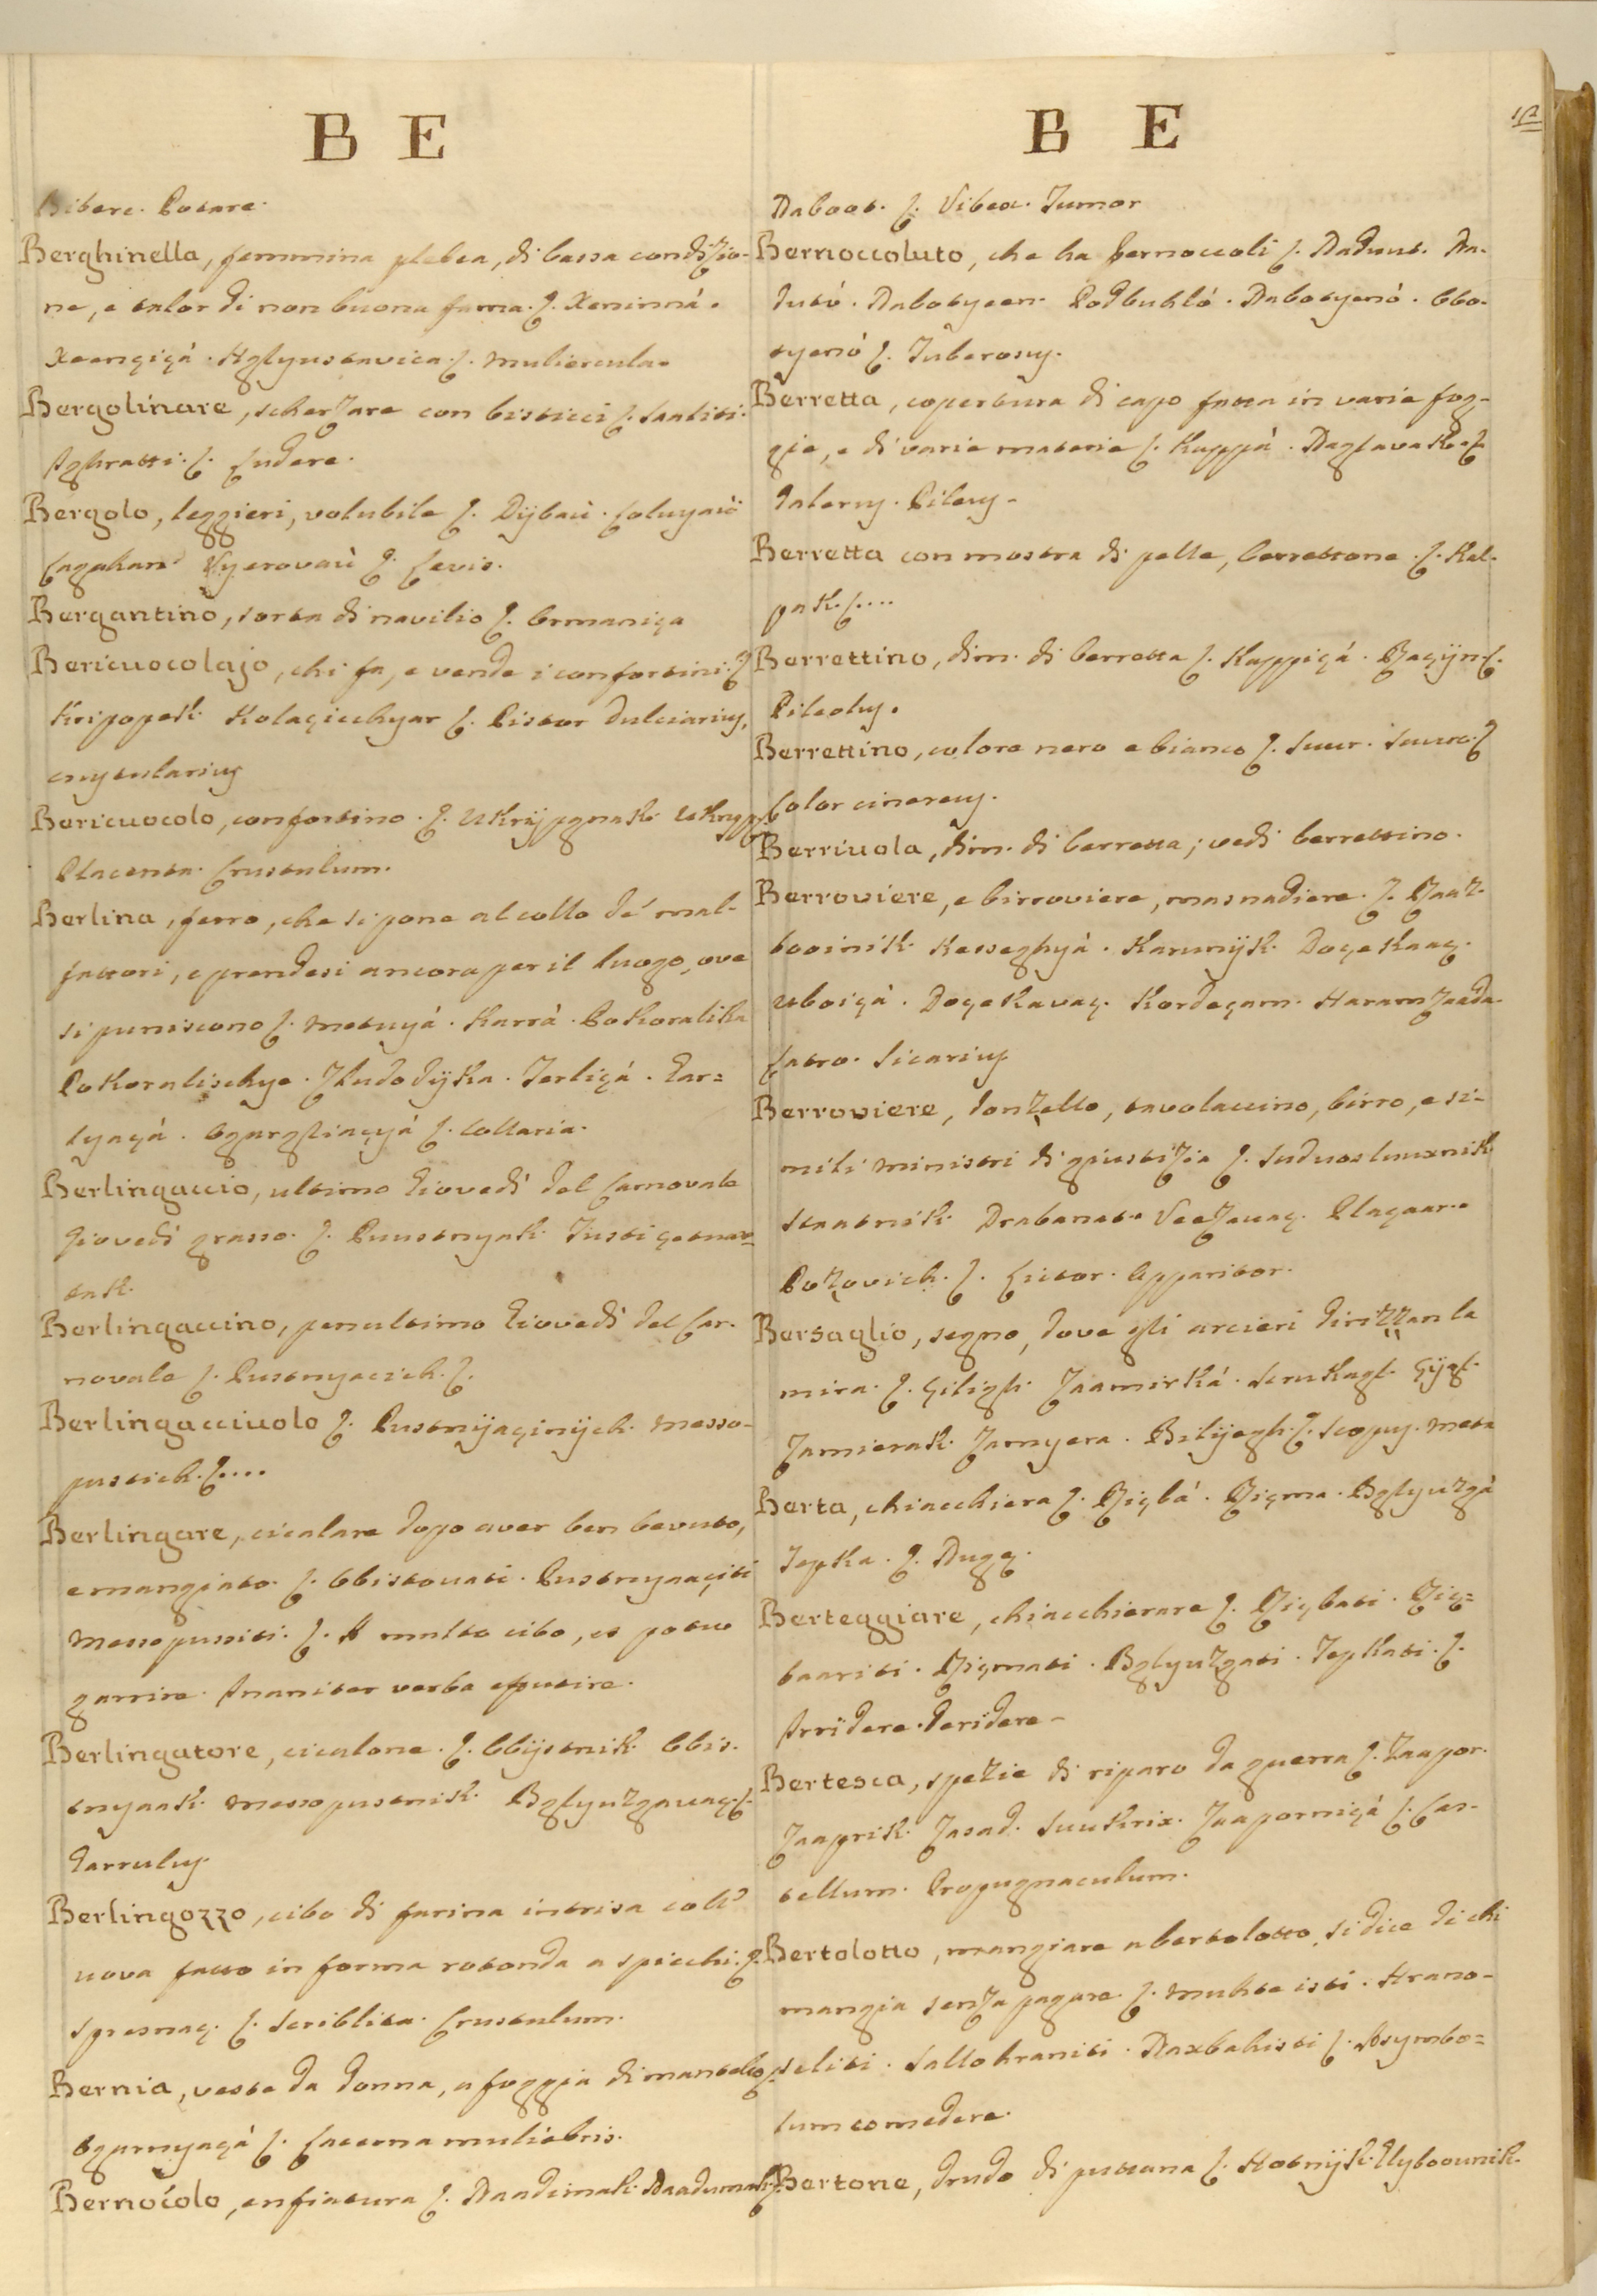 B E
Bibere. Potare.
Berghinella, femmina plebea, di bassa condizio-
ne, e talor di non buona fama. ʃ. Xeninná.
Xeençiçá. Hglyustavica. ʃ. Muliercula.
Bergolinare, scherzare con bisticci ʃ. Saaliti.
Ighratti. ʃ. Ludere.
Bergolo, leggieri, volubile ʃ. Dÿbaù.
Vyerovaù ʃ. Levis.
Bergantino, sorta di navilio ʃ. Ormaniça
Bericuocolajo, chi fa, e vende i confortini. ʃ
Kripopek. Kolaçicchyar ʃ. Pistor dulciarius,
crustularius
Bericuocolo, confortino. ʃ.
Placenta. Crustulum.
Berlina, ferro, che si pone al collo de' mal-
fattori, e prendesi ancora per il luogo, ove
si puniscono ʃ. Metuyá. Karrá. Pokoralika
Pokoralischye. Terliçá. Gar=
lyaçá. ʃ. Collaria.
Berlingaccio, ultimo Giovedì del Carnovale
Giovedì grasso. ʃ. Puustnyak. Tusti çetuar=
tak.
Berlingaccino, penultimo Giovedì del Car-
novale ʃ. Pustnyacich. ʃ.
Berlingacciuolo ʃ. Pustnÿaçinÿch. Messo-
pustich. ʃ....
Berlingare, cicalare dopo aver ben bevuto,
e mangiato. ʃ. Obistovati. Pustnyaaçiti
Messopussiti. ʃ. A multo cibo, et potuo
garrire. Inaniter verba effutire.
Berlingatore, cicalone. ʃ. Obÿstnik. Obis-
tnyaak. Messopustnik. Bglyuzgavaç. ʃ.
Garrulus.
Berlingozzo, cibo di farina intrisa coll'
uova fatto in forma rotonda a spicchi. ʃ.
Spresnaç. ʃ. Scriblita. Crustulum.
Bernia, veste da donna, a foggia di mantello ʃ.
Ogurnyaçá ʃ. Lacerna muliebris.
Bernócolo, enfiatura ʃ. Naadimak. Naadumak. ʃ.
B E
Nabost. ʃ. Vibex. Tumor
Bernoccoluto, che ha bernoccoli ʃ. Naduut. Na-
dutó. Nabotyeen. Podbuhló. Nabotyenó. Obo-
tyenó ʃ. Tuberosus.
Berretta, copertura di capo fatta in varie fog-
gie, e di varie materie ʃ. Kappá. Naglavak. ʃ.
Galerus. Pileus.
Berretta con mostra di pelle, berrettone. ʃ. Kal-
pak. ʃ....
Berrettino, dim. di berretta ʃ. Kappiçá. ʃ.
Pileolus.
Berrettino, colore nero e bianco ʃ. Suur. Suuro. ʃ
Color cinereus.
Berriuola, dim. di berretta; vedi berrettino.
Berroviere, e birroviere, masnadiere. ʃ. Raaz-
booinik. Kesseghyá. Doçekaaç.
Uboiçá. Doçekavaç. Kordeçam. Haramzaada.
Latro. Sicarius
Berroviere, donzello, tavolaccino, birro, e si-
mili ministri di giustizia ʃ. Suduosluuxnik
Staatnik. Drabanat. Veezauaç. Plaçaar.
Pozovich. ʃ. Lictor. Apparitor.
Bersaglio, segno, dove gli arcieri dirizzan la
mira. ʃ. Çiligh. Zaamirká. Scrukagl. Çÿgl.
Zamierak. Zamyera. Bilÿegh. ʃ. Scopus. Meta
Berta, chiacchiera ʃ. Riçbá. Riçma. Bglyuzgá
Tepka. ʃ. Nugæ.
Berteggiare, chiacchierare ʃ. Riçbati. Riç=
baariti. Riçmati. Bglyuzgati. Tepkati. ʃ.
Irridere. Deridere.
Bertesca, spezie di riparo da guerra ʃ. Zaapor.
Zaaprik. Zasad. Suukrix. Zaaporniçá ʃ. Cas-
tellum. Propugnaculum.
Bertolotto, mangiare a bertolotto, si dice di chi
mangia senza pagare. ʃ. Mukte isti. Hrano-
seliti. Sallohraniti. ʃ. Asymbo=
lum comedere.
Bertone, drudo di puttana ʃ. Hotnÿk. Glyboounik.